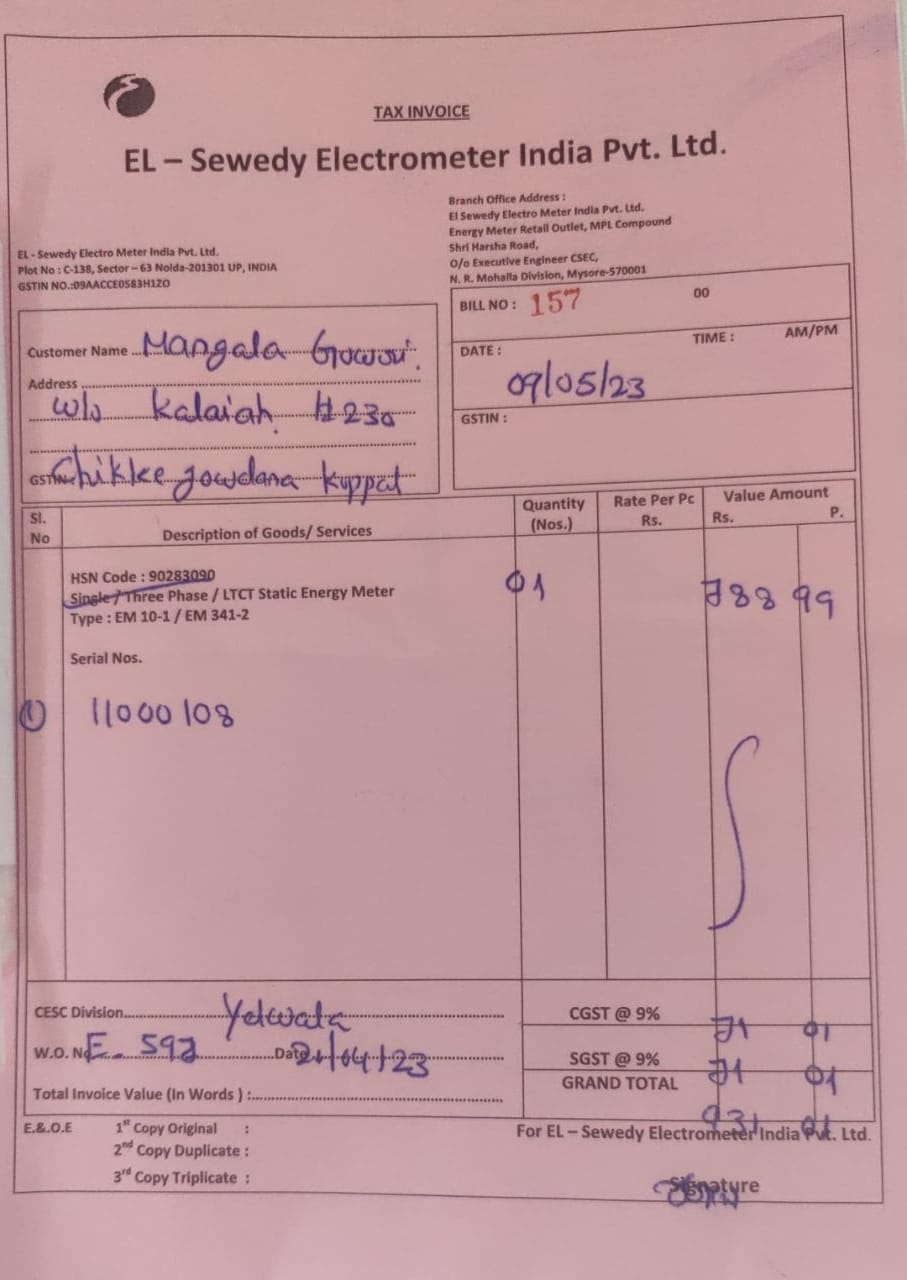 TAX INVOICE
EL – Sewedy Electrometer India Pvt. Ltd.
EL - Sewedy Electro Meter India Pvt. Ltd.
Plot No : C-138, Sector – 63 Noida-201301 UP, INDIA
GSTIN NO.:09AACCE0583H1ZO
Branch Office Address :
El Sewedy Electro Meter India Pvt. Ltd.
Energy Meter Retail Outlet, MPL Compound
Shri Harsha Road,
O/o Executive Engineer CSEC,
N. R. Mohalla Division, Mysore-570001
Customer Name Mangala Gowri.
Address
w/o Kalaiah. #230
GSTIN Chikkegowdana Kuppal
BILL NO : 157 00
DATE : TIME : AM/PM
09/05/23
GSTIN :
Sl. No Description of Goods/ Services Quantity (Nos.) Rate Per Pc Rs. Value Amount Rs. P.
HSN Code : 90283090
Single / Three Phase / LTCT Static Energy Meter 01 788 99
Type : EM 10-1 / EM 341-2
Serial Nos.
1 11000108
CESC Division Yelwala
W.O. No E- 592 Date 21/04/23
Total Invoice Value (In Words ) :
CGST @ 9% 71 01
SGST @ 9% 71 01
GRAND TOTAL 931 01
E.&.O.E 1st Copy Original :
2nd Copy Duplicate :
3rd Copy Triplicate :
For EL – Sewedy Electrometer India Pvt. Ltd.
Signature